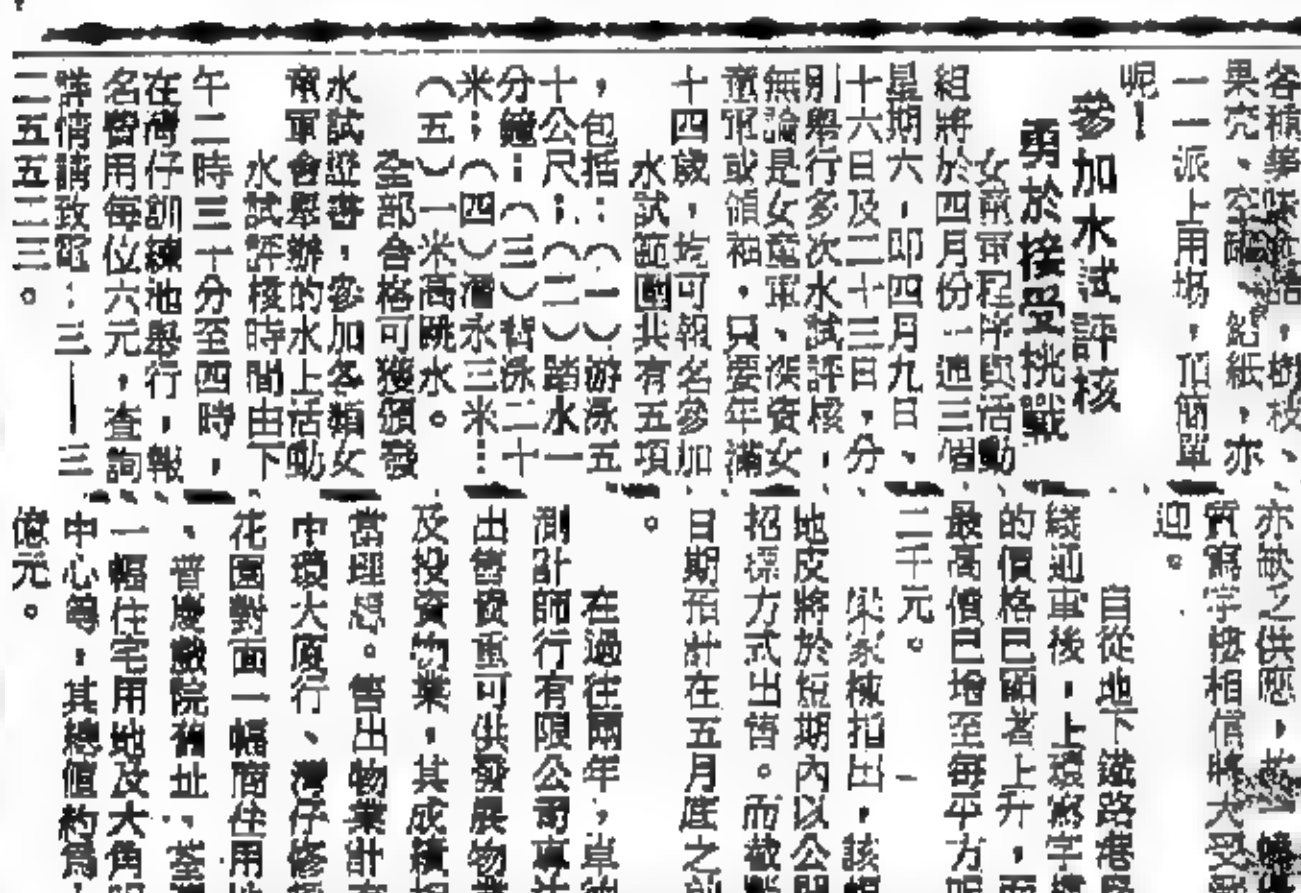 一一派上用場,頂簡單
呢!
參加水試評核
勇於接受挑戰
女童軍程序與活動
組將於四月份一連三個
星期六,即四月九日、
十六日及二十三日,分
別舉行多次水試評核,
無論是女童軍、深資女
童軍或領袖,只要年滿
十四歲,均可報名參加
水試範圍共有五項
,包括:(一)游泳五
十公尺;(二)踏水一
分鐘;(三)背泳二十
米;(四)潛水三米;
(五)一米高跳水。
全部合格可獲頒發
水試證書,參加各類女
童軍會舉辦的水上活動
水試評核時間由下
午二時三十分至四時,
在灣仔訓練地舉行,報
名費用每位六元,查詢
詳情請致電:三—三
二五五二三。
亦缺乏供應,
質寫字樓相信將大受
迎。
自從地下鐵路港
綫通車後,上環寫字
的價格已顯著上升,
最高價已增至每平方呎
二千元。
梁家棟指出,該幅
地皮將於短期內以公開
招標方式出售。而截
日期預計在五月底之
。
在過往兩年,卓
測計師行有限公司專
出售貴重可供發展物
及投資物業,其成績
當理想。售出物業計
中環大廈行、灣仔修
花園對面一幅商住用
、普慶戲院舊址、荃
一幅住宅用地及大角
中心等,其總值約為
億元。